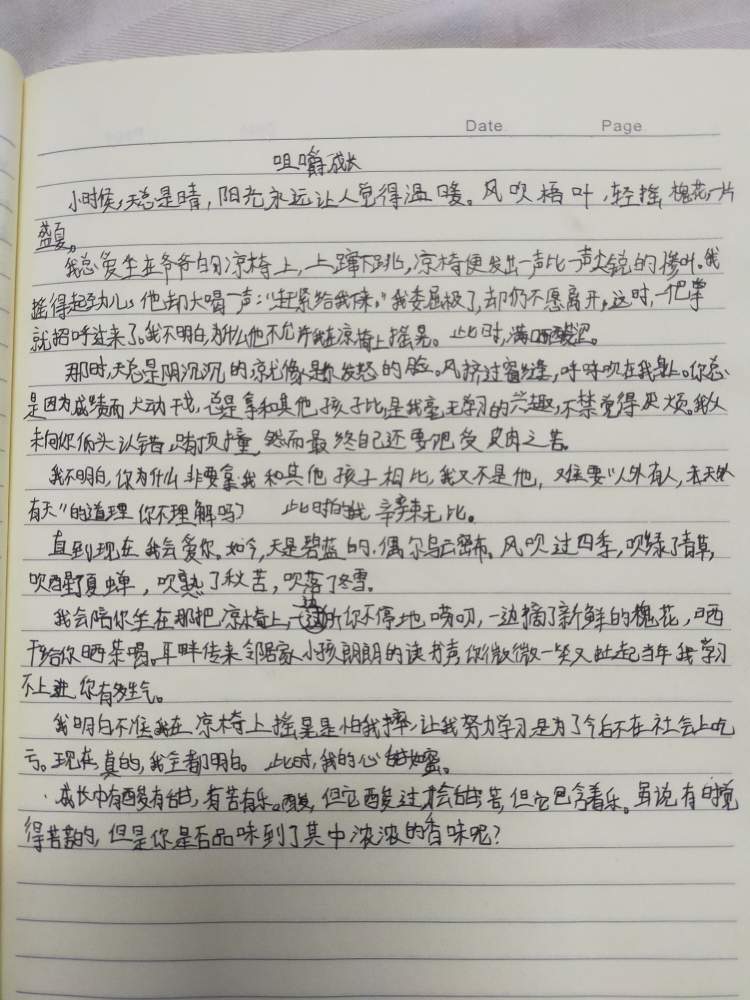 Date. Page.
咀嚼成长
小时候,天总是晴,阳光永远让人觉得温暖。风吹梧叶,轻摇槐花,一片
盛夏。
我总爱坐在爷爷的凉椅上,上蹿下跳,凉椅便发出一声比一声尖锐的惨叫。我
摇得起劲儿,他却大喝一声:“赶紧给我下来。”我委屈极了,却仍不愿离开,这时,一把掌
就招呼过来了。我不明白,为什么他不允许我在凉椅上摇晃。此时,满口酸涩。
那时,天总是阴沉沉的就像是你发怒的脸。风挤过窗缝,呼哧吹在我身上。你总
是因为成绩而大动干戈,总是拿和其他孩子比,是我毫无学习的兴趣,不禁觉得厌烦。我从
未向你低头认错,顶撞,然而最终自己还要吧受皮肉之苦。
我不明白,你为什么非要拿我和其他孩子相比,我又不是他,难道“人外有人,天外
有天”的道理你不理解吗?此时的我辛辣无比。
直到现在我会爱你。如今,天是碧蓝的,偶尔乌云密布。风吹过四季,吹绿了青草,
吹醒了夏蝉,吹熟了秋苦,吹落了冬雪。
我会陪你坐在那把凉椅上,一边听你不停地唠叨,一边摘了新鲜的槐花,晒
干给你晒茶喝。耳畔传来邻居家小孩朗朗的读书声,你微微一笑又此起当年我学习
不上进你有多生气。
我明白不准我在凉椅上摇晃是怕我摔,让我努力学习是为了今后不在社会上吃
亏。现在,真的,我全都明白。此时,我的心甜如蜜。
成长中有酸有甜,有苦有乐。酸,但它酸过才会甜;苦,但它包含着乐。虽说有时觉
得苦的,但是你是否品味到了其中浓浓的香味呢?